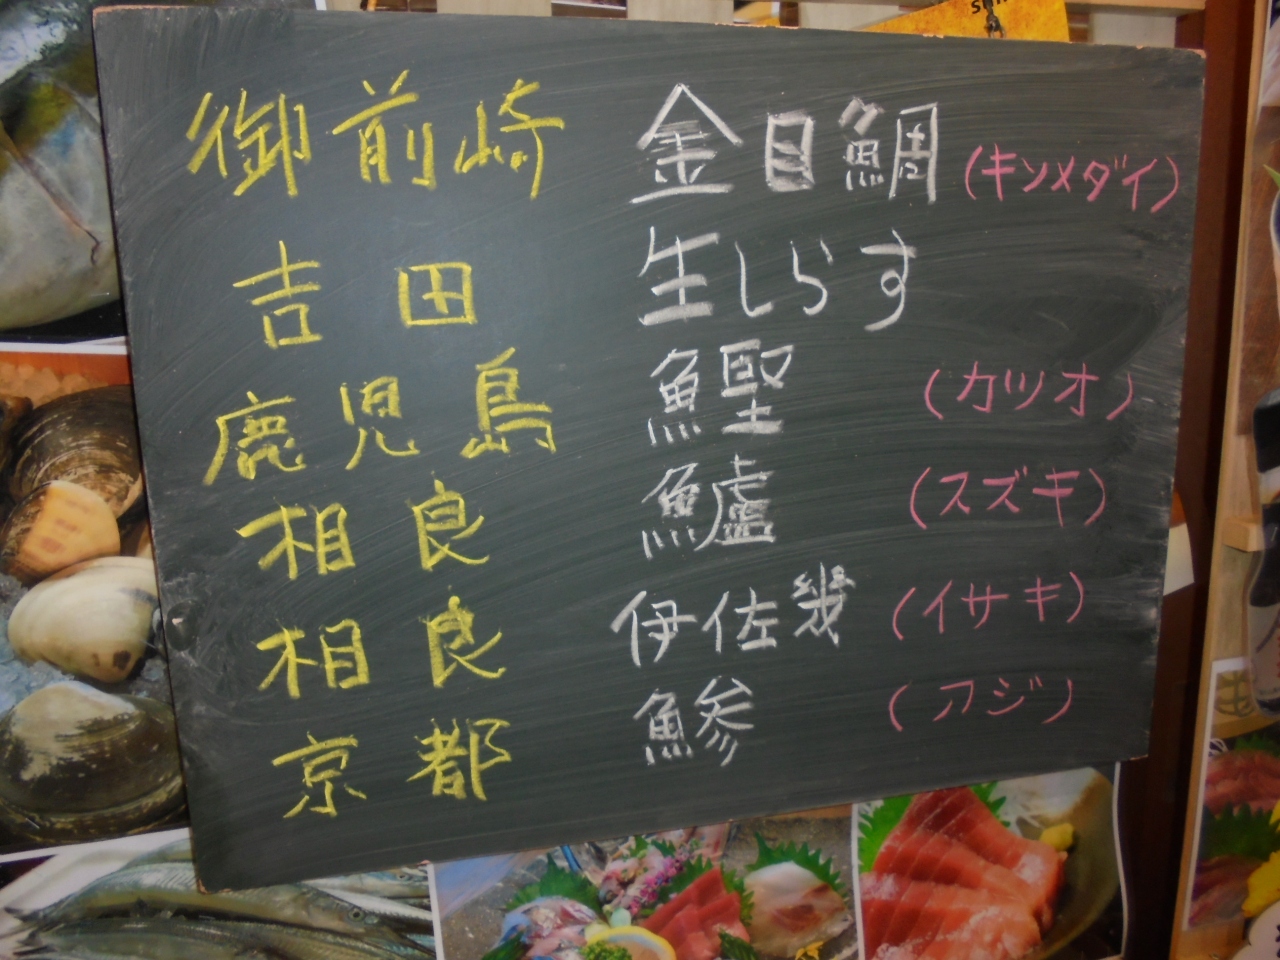 御前崎 金目鯛 (キンメダイ)
吉田 生しらす
鹿児島 鰹 (カツオ)
相良 鱸 (スズキ)
相良 伊佐幾 (イサキ)
京都 鯵 (アジ)